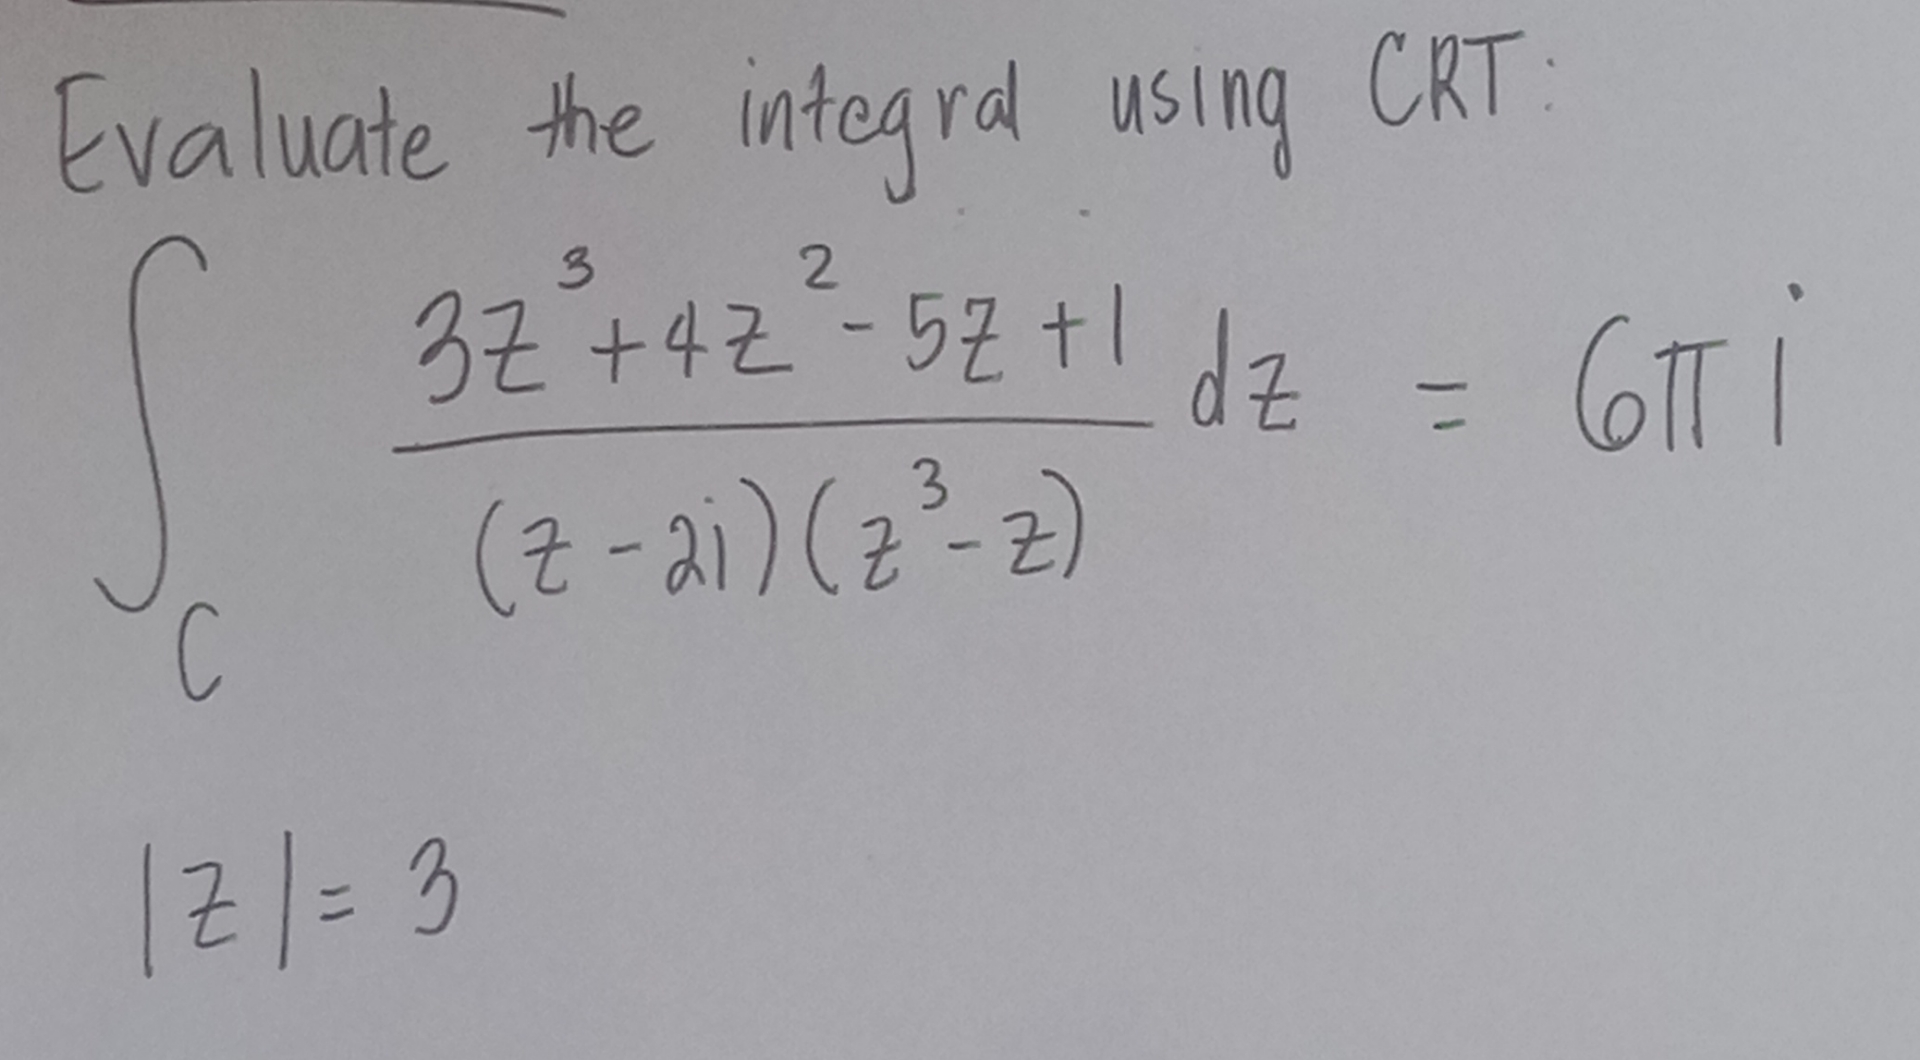 Evaluate the integral using CRT:
∫_C (3z³ + 4z² - 5z + 1) / ((z - 2i)(z³ - z)) dz = 6π i
|z| = 3